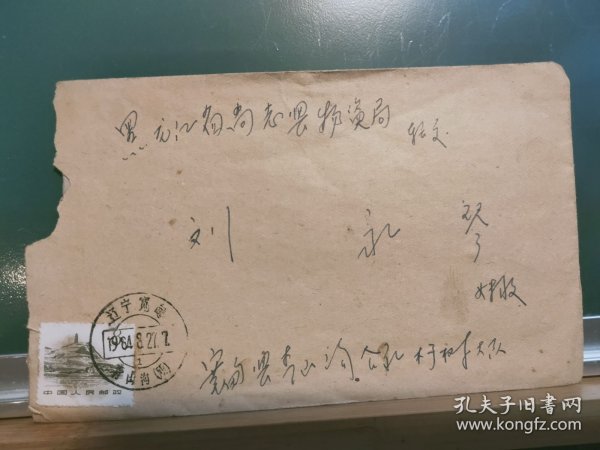 黑龙江省尚志县物资局 转交
刘 永 琴
收
辽宁宽甸
1964.8.27.7
青山沟
中国人民邮政
宽甸县青山沟公社
大队
孔夫子旧书网
www.kongfz.com